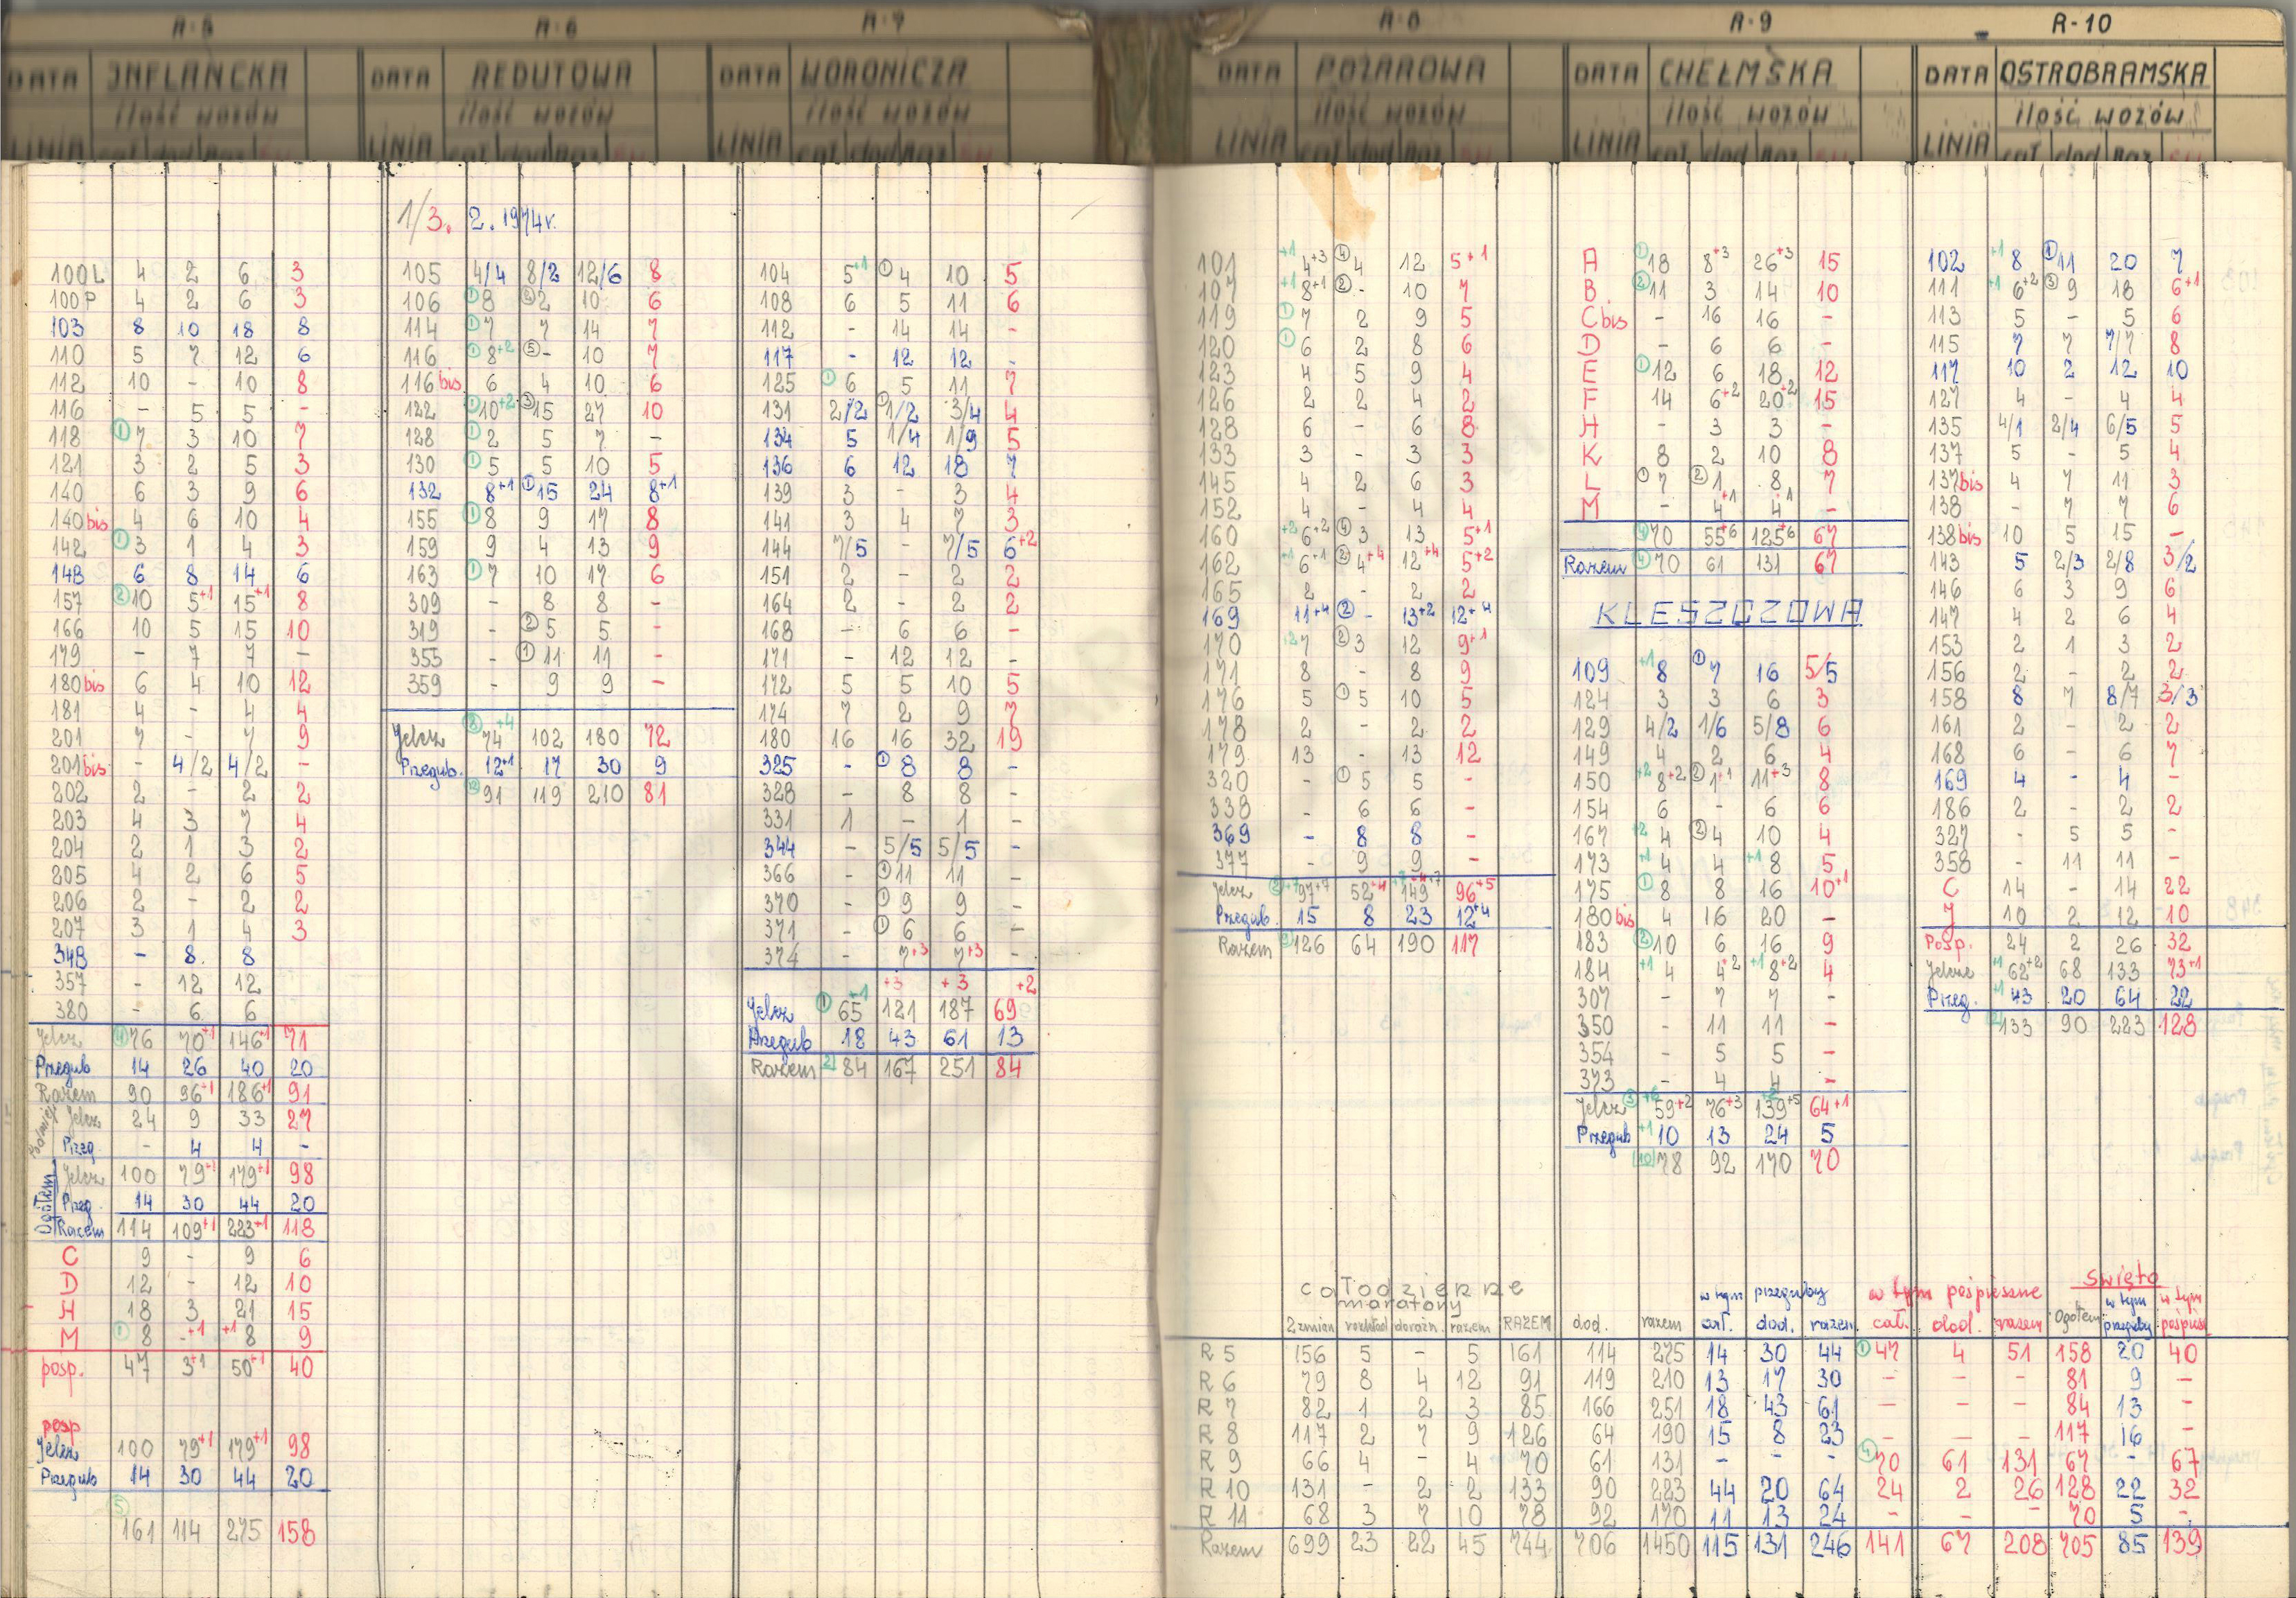 R-5
INFLANCKA
DATA
ilość wozów
LINIA
R-6
REDUTOWA
DATA
ilość wozów
LINIA
R-7
WORONICZA
DATA
ilość wozów
LINIA
R-8
POŻAROWA
DATA
ilość wozów
LINIA
R-9
CHEŁMSKA
DATA
ilość wozów
LINIA
R-10
DATA OSTROBRAMSKA
ilość wozów
LINIA
100L 4 2 6 3
100P 4 2 6 3
103 8 10 18 8
110 5 7 12 6
112 10 - 10 8
116 - 5 5 -
118 ① 7 3 10 7
121 3 2 5 3
140 6 3 9 6
140bis 4 6 10 4
142 ① 3 1 4 3
148 6 8 14 6
157 ② 10 5+1 15+1 8
166 10 5 15 10
179 - 7 7 -
180bis 6 4 10 12
181 4 - 4 4
201 7 - 7 9
201bis - 4/2 4/2 -
202 2 - 2 2
203 4 3 7 4
204 2 1 3 2
205 4 2 6 5
206 2 - 2 2
207 3 1 4 3
348 - 8 8
357 - 12 12
380 - 6 6
Jelcz ④ 76 70+1 146+1 71
Przegub 14 26 40 20
Razem 90 96+1 186+1 91
Jelcz 24 9 33 27
Przeg. - 4 4 -
Jelcz 100 79+1 179+1 98
Przeg. 14 30 44 20
Razem 114 109+1 223+1 118
C 9 - 9 6
D 12 - 12 10
H 18 3 21 15
M ① 8 -+1 +1 8 9
posp. 47 3+1 50+1 40
posp
Jelcz 100 79+1 179+1 98
Przegub 14 30 44 20
⑤
161 114 275 158
1/3. 2. 1974r.
105 4/4 8/2 12/6 8
106 ① 8 ② 2 10 6
114 ① 7 7 14 7
116 ① 8+2 ⑤ - 10 7
116bis 6 4 10 6
122 ① 10+2 ③ 15 27 10
128 ① 2 5 7 -
130 ① 5 5 10 5
132 8+1 ① 15 24 8+1
155 ① 8 9 17 8
159 9 4 13 9
163 ① 7 10 17 6
309 - 8 8 -
319 - ② 5 5 -
353 - ① 11 11 -
359 - 9 9 -
Jelcz ⑧ +4 74 102 180 72
Przegub. 12+1 17 30 9
91 119 210 81
104 5+1 ① 4 10 5
108 6 5 11 6
112 - 14 14 -
117 - 12 12 -
125 ① 6 5 11 7
131 2/2 ① 1/2 3/4 4
134 5 1/4 1/9 5
136 6 12 18 7
139 3 - 3 4
141 3 4 7 3
144 7/5 - 7/5 6+2
151 2 - 2 2
164 2 - 2 2
168 - 6 6 -
171 - 12 12 -
172 5 5 10 5
174 7 2 9 7
180 16 16 32 19
325 - ① 8 8 -
328 - 8 8 -
331 1 - 1 -
344 - 5/5 5/5 -
366 - ① 11 11 -
370 - ① 9 9 -
371 - ① 6 6 -
374 - 7+3 7+3 -
+3 +3 +2
Jelcz ① +1 65 121 187 69
Przegub 18 43 61 13
Razem 2 84 167 251 84
101 +1 4+3 ④ 4 12 5+1
107 +1 8+1 ② - 10 7
119 ① 7 2 9 5
120 ① 6 2 8 6
123 4 5 9 4
126 2 2 4 2
128 6 - 6 8
133 3 - 3 3
145 4 2 6 3
152 4 - 4 4
160 +2 6+2 ④ 3 13 5+1
162 +1 6+1 ② 4+4 12+4 5+2
165 2 - 2 2
169 11+4 ② - 13+2 12+4
170 +2 7 ② 3 12 9+1
171 8 - 8 9
176 5 ① 5 10 5
178 2 - 2 2
179 13 - 13 12
320 - ① 5 5 -
338 - 6 6 -
369 - 8 8 -
377 - 9 9 -
Jelcz ② +7 97+7 52+4 149 96+5
Przegub. 15 8 23 12+4
Razem 126 64 190 117
A ① 18 8+3 26+3 15
B. ② 11 3 14 10
C bis - 16 16 -
D - 6 6 -
E ① 12 6 18 12
F 14 6+2 20+2 15
H - 3 3 -
K 8 2 10 8
L ① 7 ② 1 8 7
M - 4+1 4+1 -
④ 70 55+6 125+6 67
Razem ④ 70 61 131 67
KLESZCZOWA
109 +1 8 ① 7 16 5/5
124 3 3 6 3
129 4/2 1/6 5/8 6
149 4 2 6 4
150 +2 8+2 ② 1+1 11+3 8
154 6 - 6 6
167 +2 4 ② 4 10 4
173 +1 4 4 +1 8 5
175 ① 8 8 16 10+1
180bis 4 16 20 -
183 ② 10 6 16 9
184 +1 4 4+2 +1 8+2 4
307 - 7 7 -
350 - 11 11 -
354 - 5 5 -
373 - 4 4 -
Jelcz ③ +6 59+2 76+3 139+5 64+1
Przegub +1 10 13 24 5
10 78 92 170 70
102 +1 8 ① 11 20 7
111 +1 6+2 ③ 9 18 6+1
113 5 - 5 6
115 7 7 7/7 8
117 10 2 12 10
127 4 - 4 4
135 4/1 2/4 6/5 5
137 5 - 5 4
137bis 4 7 11 3
138 - 7 7 6
138bis 10 5 15 -
143 5 2/3 2/8 3/2
146 6 3 9 6
147 4 2 6 4
153 2 1 3 2
156 2 - 2 2
158 8 7 8/7 3/3
161 2 - 2 2
168 6 - 6 7
169 4 - 4 -
186 2 - 2 2
327 - 5 5 -
358 - 11 11 -
C 14 - 14 22
J 10 2 12 10
Posp. 24 2 26 32
Jelcze +1 62+2 68 133 73+1
Przeg. +1 43 20 64 22
133 90 223 128
całodzienne
maratony
2 zmian rozkład doraźn. razem RAZEM dod. razem
w tym przeguby
cał. dod. razem
w tym pośpieszne
cał. dod. razem
święto
Ogółem w tym przeguby w tym pośpiesz.
R 5 156 5 - 5 161 114 275 14 30 44 ① 47 4 51 158 20 40
R 6 79 8 4 12 91 119 210 13 17 30 - - - 81 9 -
R 7 82 1 2 3 85 166 251 18 43 61 - - - 84 13 -
R 8 117 2 7 9 126 64 190 15 8 23 - - - 117 16 -
R 9 66 4 - 4 70 61 131 - - - ④ 70 61 131 67 - 67
R 10 131 - 2 2 133 90 223 44 20 64 24 2 26 128 22 32
R 11 68 3 7 10 78 92 170 11 13 24 - - - 70 5 -
Razem 699 23 22 45 744 706 1450 115 131 246 141 67 208 705 85 139